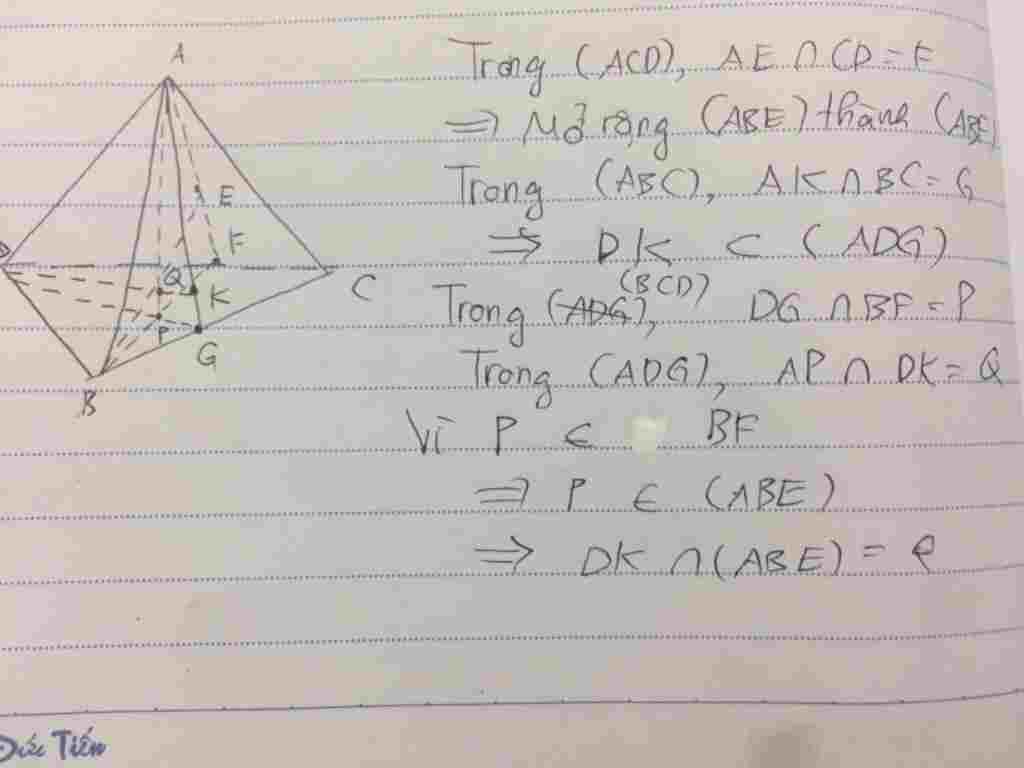 A
E
F
Q
K
C
P
G
B
Trong (ACD), AE ∩ CD = F
⇒ Mở rộng (ABE) thành (ABF)
Trong (ABC), AK ∩ BC = G
⇒ DK ⊂ (ADG)
(BCD)
Trong (ADG), DG ∩ BF = P
Trong (ADG), AP ∩ DK = Q
Vì P ∈ BF
⇒ P ∈ (ABE)
⇒ DK ∩ (ABE) = Q
Đức Tiến